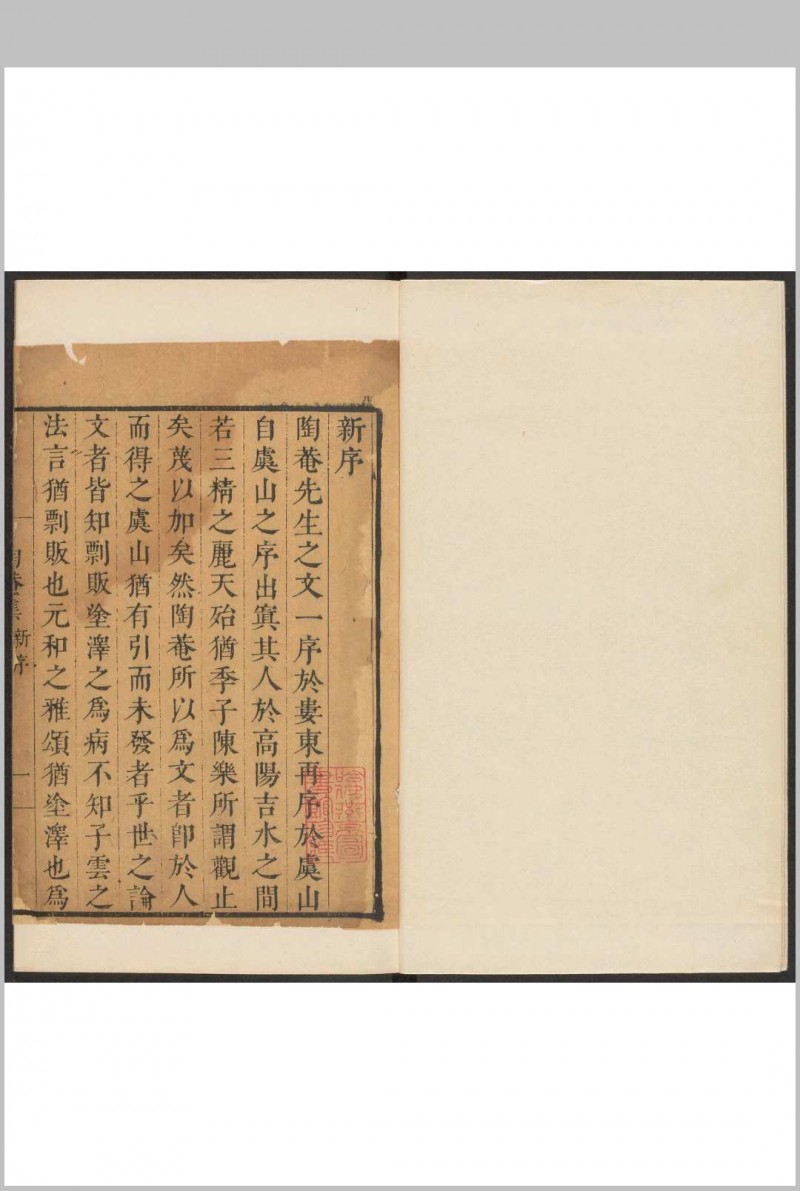 新序
陶菴先生之文一序於婁東再序於虞山
自虞山之序出寘其人於高陽吉水之間
若三精之麗天殆猶季子陳樂所謂觀止
矣蔑以加矣然陶菴所以爲文者卽於人
而得之虞山猶有引而未發者乎世之論
文者皆知剽販塗澤之爲病不知子雲之
法言猶剽販也元和之雅頌猶塗澤也爲
陶菴集 新序 一